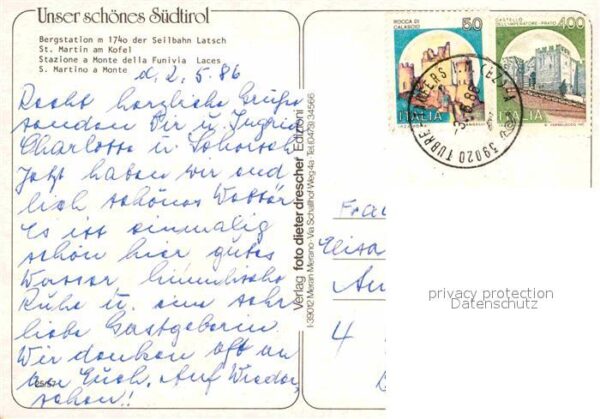 Unser schönes Südtirol
Bergstation m 1740 der Seilbahn Latsch
St. Martin am Kofel
Stazione a Monte della Funivia Laces
S. Martino a Monte
d. 2. 5. 86
Recht herzliche Grüße
senden Dir u. Ingrid
Charlotte u.
Jetzt haben wir end
lich schönes Wetter
Es ist einmalig
schön hier gutes
Wasser himmlische
Ruhe u. eine sehr
liebe Gastgeberin
Wir denken oft an
an Euch. Auf Wieder
sehen!!
25/57
Verlag foto dieter drescher Edizioni
I-39012 Meran Merano-Via Schallhof Weg 4a Tel.(0473) 34566
ROCCA DI
CALASCIO
50
ITALIA
CASTELLO
DELL'IMPERATORE-PRATO
400
ITALIA
39020 TUBRE
Frau
Elisa
4
privacy protection
Datenschutz